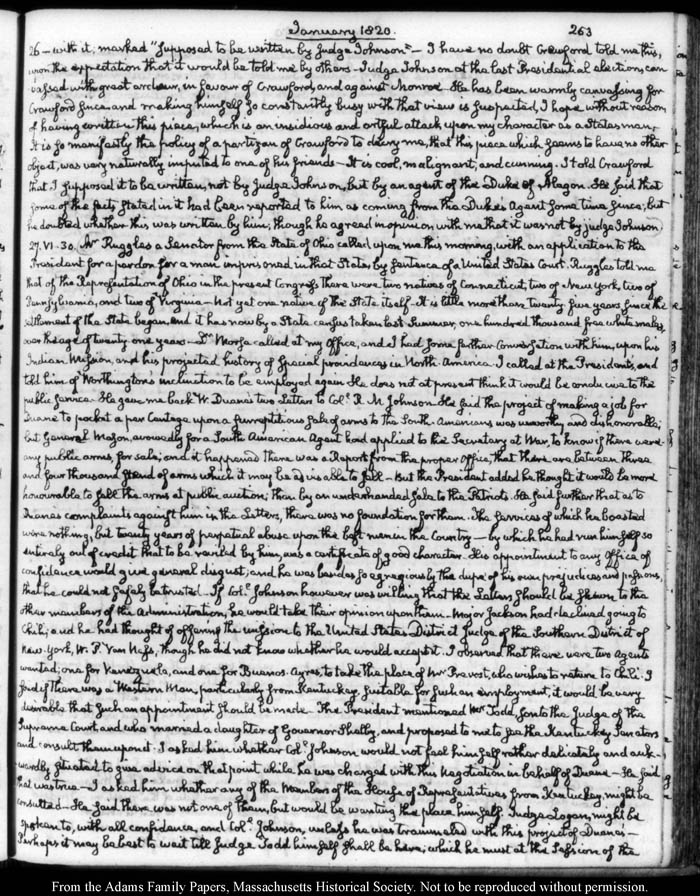 January 1820. 263
26 — with it; marked "Supposed to be written by Judge Johnson" — I have no doubt Crawford told me this,
upon the expectation that it would be told me by others — Judge Johnson at the last Presidential election, can-
vassed with great ardour, in favour of Crawford, and against Monroe. He has been warmly canvassing for
Crawford since and making himself so constantly busy with that view is suspected, I hope without reason
of having written this piece, which is an insidious and artful attack upon my character as a Statesman,
It is so manifestly the policy of a partizan of Crawford to decry me, that this piece which seems to have no other
object, was very naturally imputed to one of his friends — It is cool, malignant, and cunning. I told Crawford
that I supposed it to be written, not by Judge Johnson, but by an agent of the Duke of Alagon. He said that
some of the facts stated in it had been reported to him as coming from the Duke's Agent some time since; but
he doubted whether this was written by him; though he agreed in opinion with me that it was not by Judge Johnson
27. VI. 30. Mr Ruggles a Senator from the State of Ohio called upon me this morning, with an application to the
President for a pardon for a man imprisoned in that State, by sentence of a United States Court. Ruggles told me
that of the Representation of Ohio in the present Congress there were two natives of Connecticut, two of New York, two of
Pennsylvania, and two of Virginia — Not yet one native of the State itself — It is little more than twenty five years since the
settlement of the State began, and it has now by a State census taken last Summer, one hundred thousand free white males,
over the age of twenty one years — Dr Morse called at my Office, and I had some further Conversation with him, upon his
Indian Mission, and his projected history of special providences in North America. I called at the President's, and
told him of Worthington's inclination to be employed again. He does not at present think it would be conducive to the
public service. He gave me back W. Duane's two Letters to Col. R. M. Johnson. He said the project of making a job for
Duane to pocket a per Centage upon a surreptitious sale of arms to the South Americans was unworthy and dishonorable;
but General Mason, avowedly for a South American Agent had applied to the Secretary at War, to know if there were
any public arms, for sale; and it happened there was a Report from the proper Office, that there are between three
and four thousand stand of arms which it may be advisable to sell — But the President added he thought it would be more
honourable to sell the arms at public auction; than by an underhanded sale to the Patriots. He said further that as to
Duane's complaints against him in the Letters, there was no foundation for them. The services of which he boasted
were nothing, but twenty years of perpetual abuse upon the best men in the Country — by which he had run himself so
entirely out of credit that to be reviled by him, was a certificate of good character. His appointment to any Office of
confidence would give general disgust; and he was besides so egregiously the dupe of his own prejudices and passions,
that he could not safely be trusted. If Col. Johnson however was willing that the Letters should be shewn to the
other members of the Administration, he would take their opinion upon them. Major Jackson had declined going to
Chili; and he had thought of offering the mission to the United States District Judge of the Southern District of
New-York, W. P. Van Ness, though he did not know whether he would accept it. I observed that there were two Agents
wanted; one for Venezuela, and one for Buenos-Ayres, to take the place of Mr Prevost, who wishes to return to Chili. I
said if there was a Western Man, particularly from Kentucky, suitable for such an employment, it would be very
desirable that such an appointment should be made. The President mentioned Mr Todd, son to the Judge of the
Supreme Court, and who married a daughter of Governor Shelby, and proposed to me to see the Kentucky Senators
and consult them upon it. I asked him whether Col. Johnson would not feel himself rather delicately and awk-
wardly situated to give advice on that point while he was charged with this negotiation in behalf of Duane — He said
that was true — I asked him whether any of the Members of the House of Representatives from Kentucky, might be
consulted — He said there was not one of them, but would be wanting the place himself. Judge Logan, might be
spoken to, with all confidence, and Col. Johnson, unless he was trammeled with this project of Duane's —
Perhaps it may be best to wait till Judge Todd himself shall be here; which he must at the Session of the
From the Adams Family Papers, Massachusetts Historical Society. Not to be reproduced without permission.